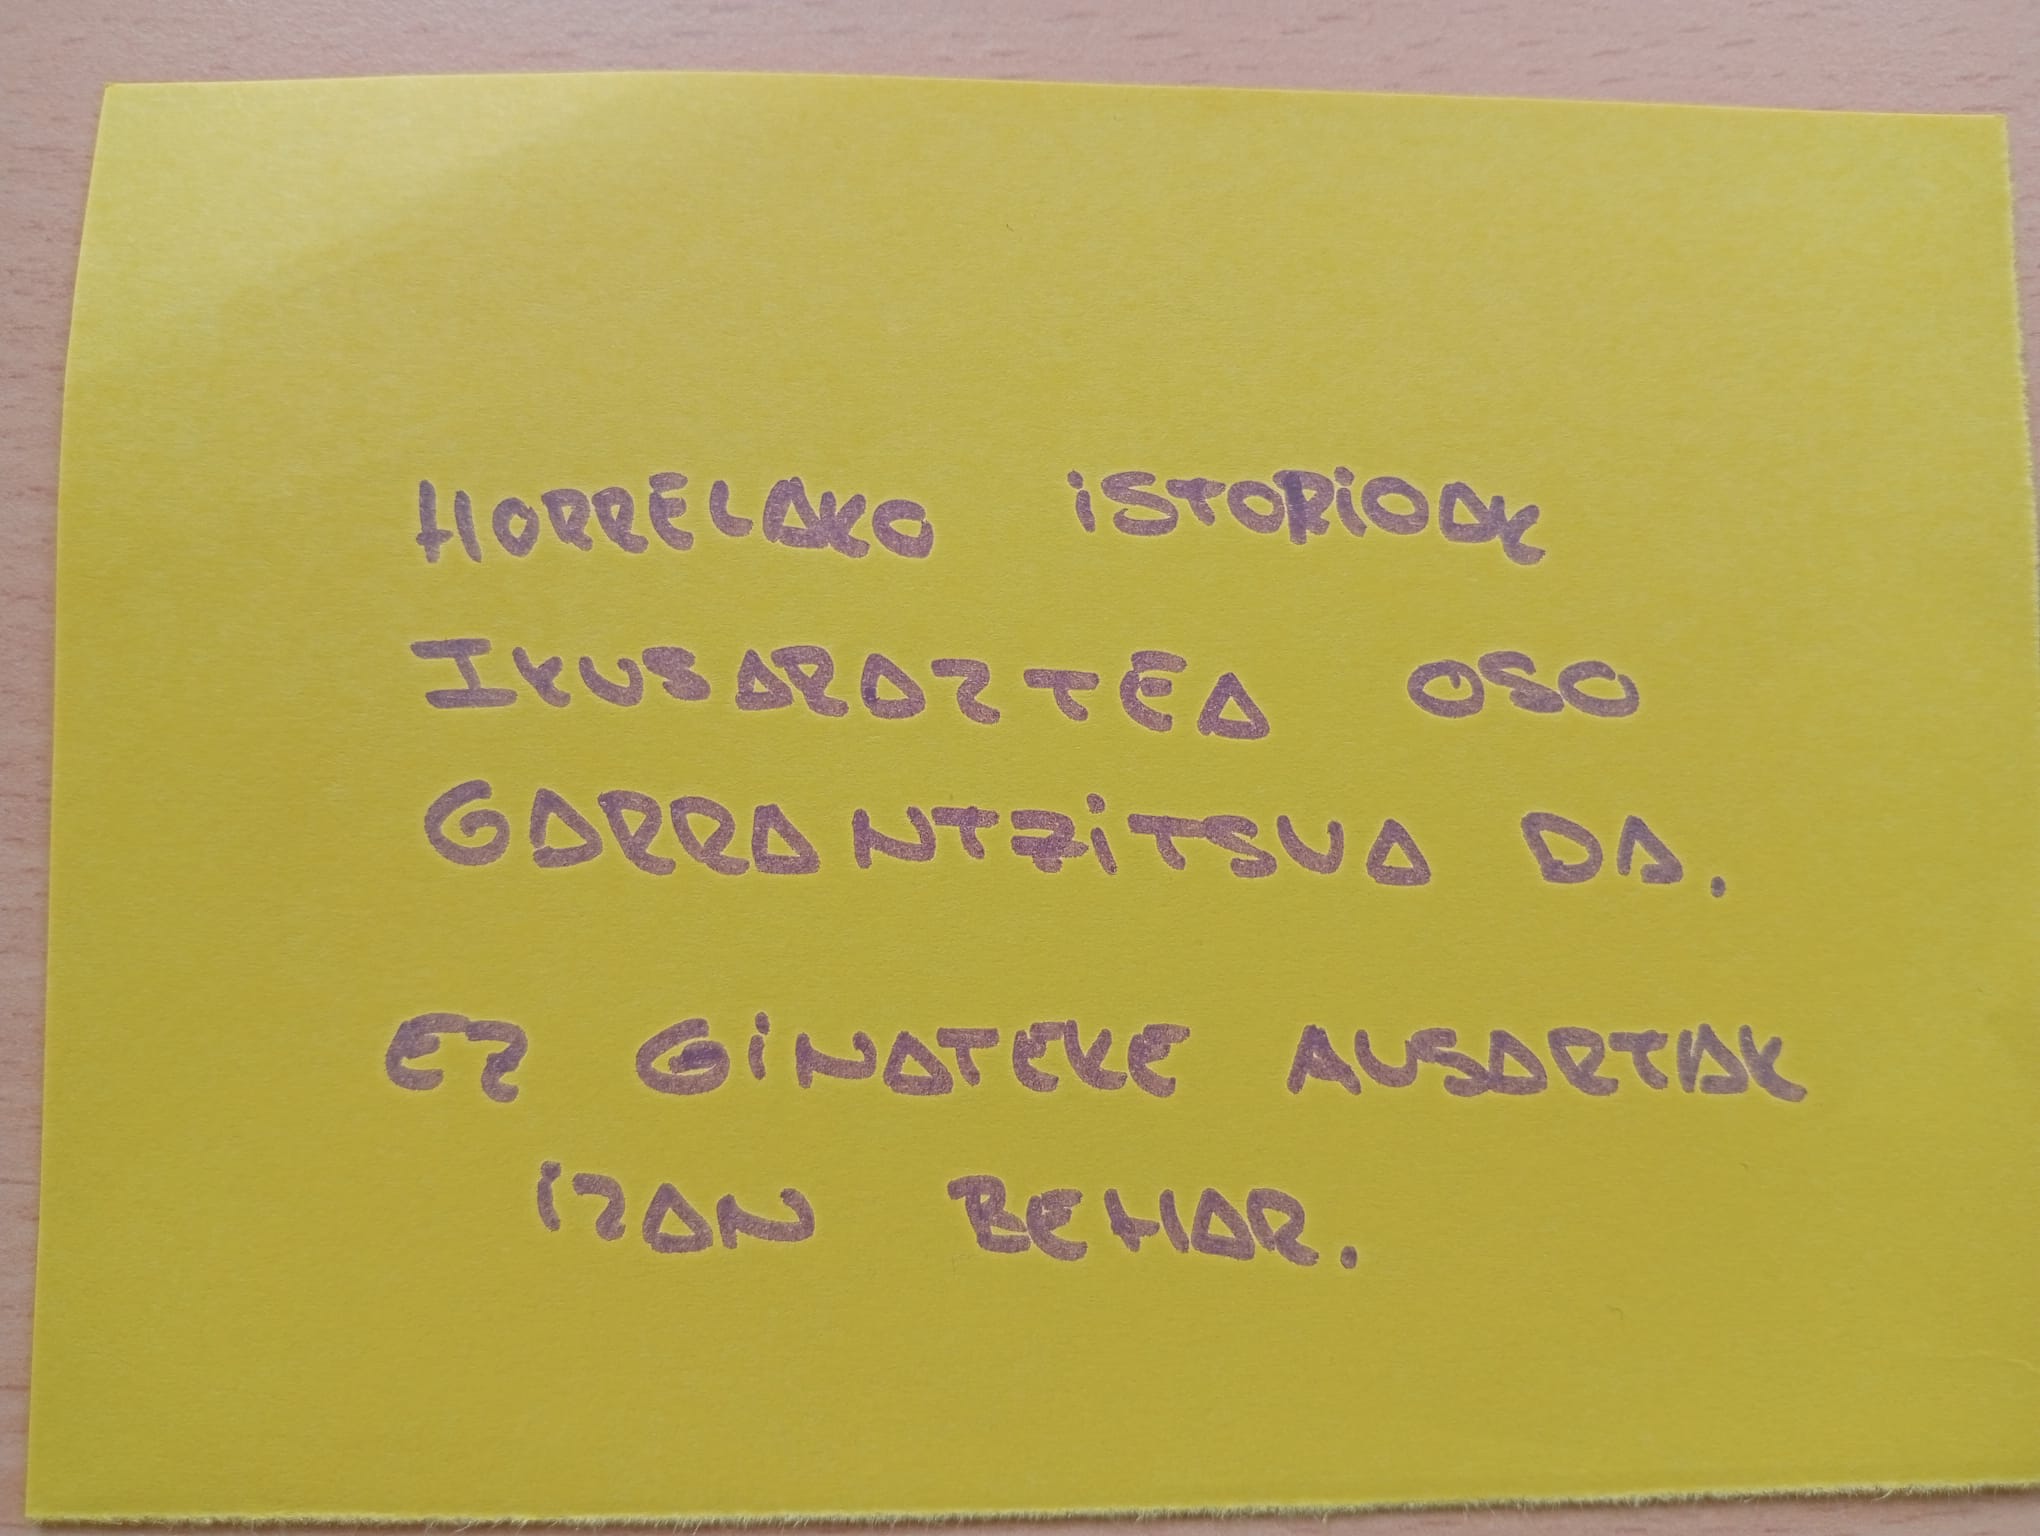 HORRELAKO ISTORIOAK
IKUSARAZTEA OSO
GARRANTZITSUA DA.
EZ GINATEKE AUSARTAK
IZAN BEHAR.